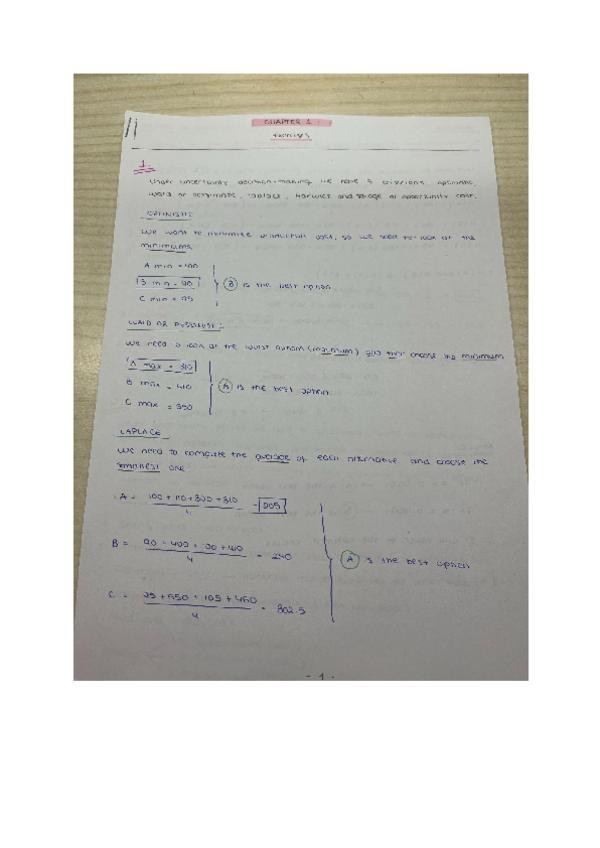 CHAPTER 1
exercises
1.
Under uncertainty decision-making we have 5 criterions: optimistic,
Wald or pessimistic, Laplace, Hurwicz and savage or opportunity cost.
OPTIMISTIC
We want to minimize production cost, so we need to look at the
minimums.
A min = 100
B min = 90
C min = 95
B is the best option
WALD OR PESSIMIST:
We need to look at the worst outcom (maximum) and then choose the minimum
A max = 310
B max = 410
C max =
A is the best option
LAPLACE
We need to complete the average of each alternative and choose the
smallest one
A = 100 + 110 + 300 + 310 / 4 = 205
B = 90 + 400 + + 410 / 4 = 240
C = 95 + + 105 + / 4 = 302.5
A is the best option
- 1 -